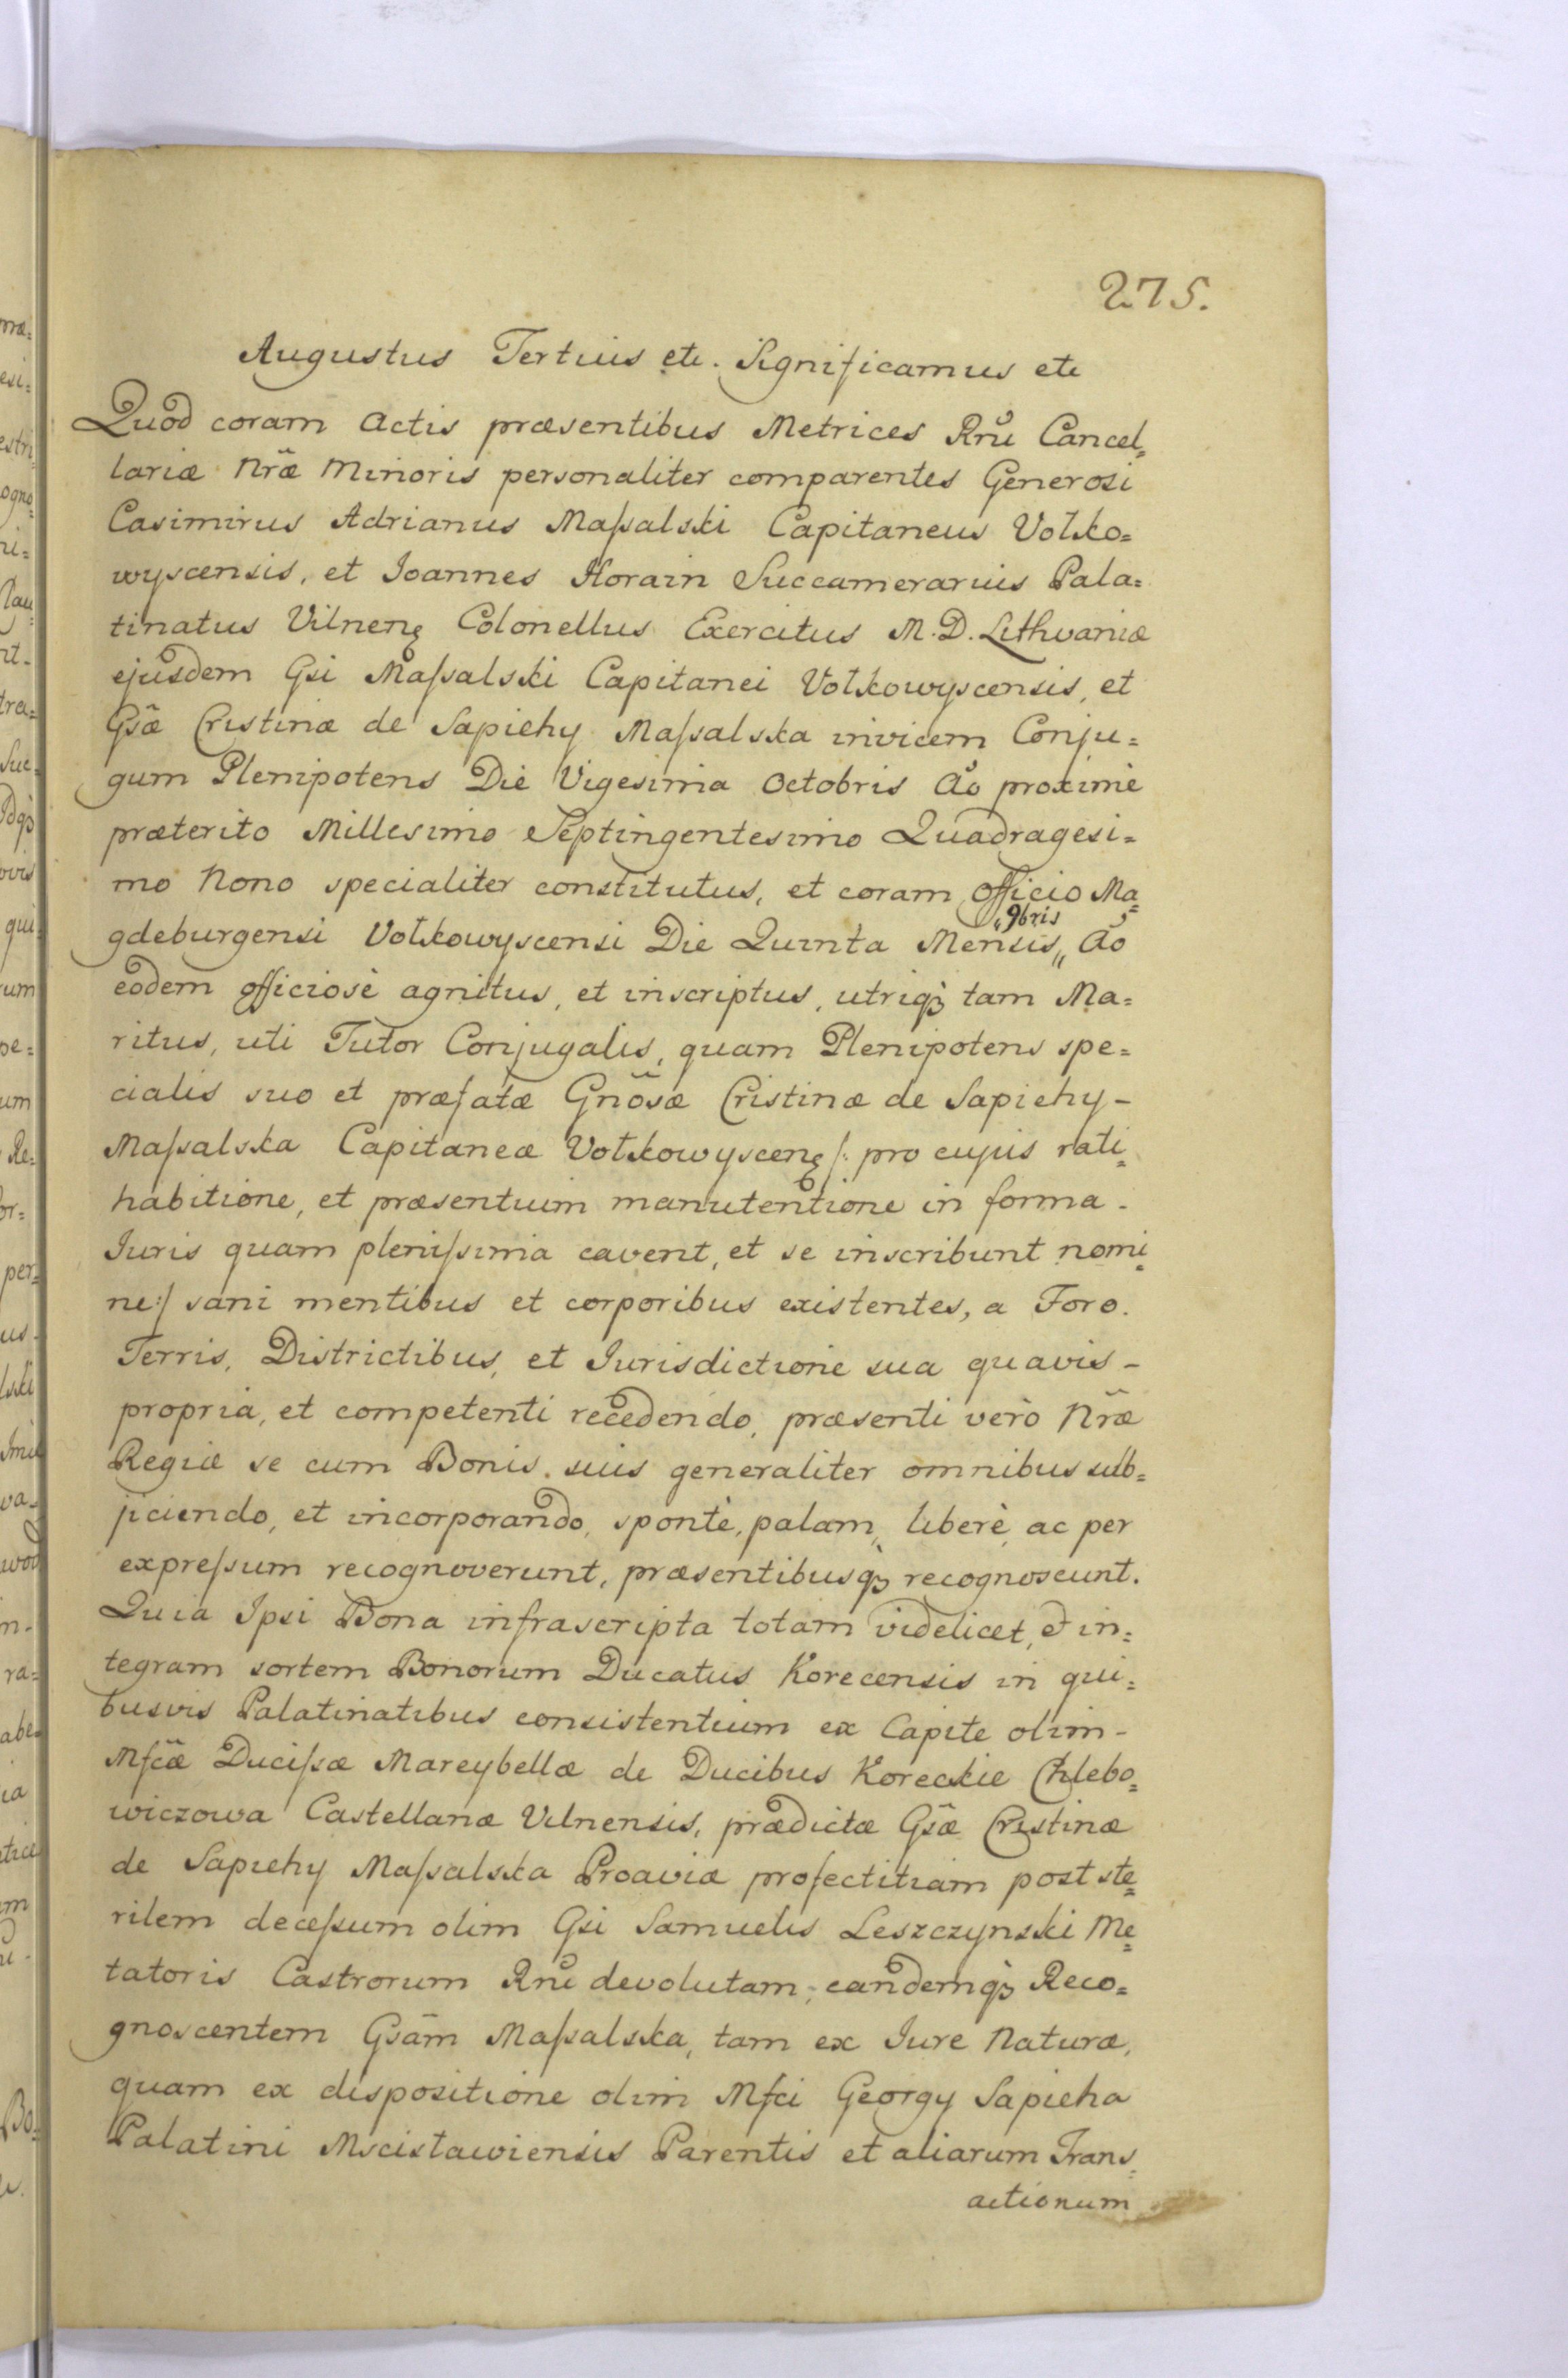 275.
Augustus Tertius etc. Significamus etc
Quod coram Actis præsentibus Metrices Rnĩ Cancel=
lariæ Nræ̃ Minoris personaliter comparentes Generosi
Casimirus Adrianus Maſsalski Capitaneus Vołko=
wyscensis, et Joannes Horain Succamerarius Pala=
tinatus Vilnenꝫ Colonellus Exercitus M. D. Lithvaniæ
ejusdem Gsi Maſsalski Capitanei Vołkowyscensis, et
Gsæ̃ Cristinæ de Sapiehy Maſsalska invicem Conju=
gum Plenipotens Die Vigesima Octobris Aõ proximè
præterito Millesimo Septingentesimo Quadragesi=
mo Nono specialiter constitutus, et coram Officio Ma=
"9bris
gdeburgensi Vołkowyscensi Die Quinta Mensis„ Aõ
eodem officiosè agnitus, et inscriptus, utriqꝫ tam Ma=
ritus, uti Tutor Conjugalis, quam Plenipotens spe=
cialis suo et præfatæ Gnõsæ Cristinæ de Sapiehy –
Maſsalska Capitaneæ Vołkowyscenꝫ /: pro cujus rati=
habitione, et præsentium manutentione in forma –
Juris quam pleniſsima cavent, et se inscribunt nomi=
ne :/ sani mentibus et corporibus existentes, a Foro.
Terris, Districtibus, et Jurisdictione sua quavis –
propria, et competenti recedendo, præsenti verò Nræ̃
Regiæ se cum Bonis suis generaliter omnibus sub=
jiciendo, et incorporando, spontè, palam, liberè, ac per
expreſsum recognoverunt, præsentibusqꝫ recognoscunt.
Quia Ipsi Bona infrascripta totam videlicet, et in=
tegram sortem Bonorum Ducatus Korecensis in qui=
busvis Palatinatibus consistentium ex Capite olim –
Mfcæ̃ Duciſsæ Mareybellæ de Ducibus Koreckie Chlebo=
wiczowa Castellanæ Vilnensis, prædictæ Gsæ̃ Cristinæ
de Sapiehy Maſsalska Proaviæ profectitiam post ste=
rilem deceſsum olim Gsi Samuelis Leszczynski Me=
tatoris Castrorum Rnĩ devolutam, eandemqꝫ Reco=
gnoscentem Gsãm Maſsalska, tam ex Jure Naturæ,
quam ex dispositione olim Mfci Georgy Sapieha
Palatini Mscisławiensis Parentis et aliarum Trans=
actionum